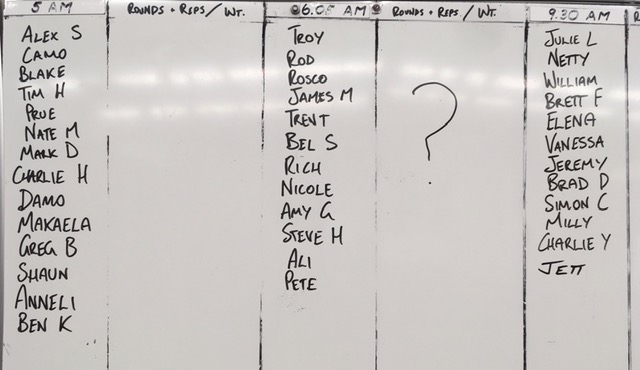 5 AM
ROUNDS + REPS / WT.
ALEX S
CAMO
BLAKE
TIM H
PRUE
NATE M
MARK D
CHARLIE H
DAMO
MAKAELA
GREG B
SHAUN
ANNELI
BEN K
6.05 AM
ROUNDS + REPS / WT.
TROY
ROD
ROSCO
JAMES M
TRENT
BEL S
RICH
NICOLE
AMY G
STEVE H
ALI
PETE
?
9.30 AM
JULIE L
NETTY
WILLIAM
BRETT F
ELENA
VANESSA
JEREMY
BRAD D
SIMON C
MILLY
CHARLIE Y
JETT
R